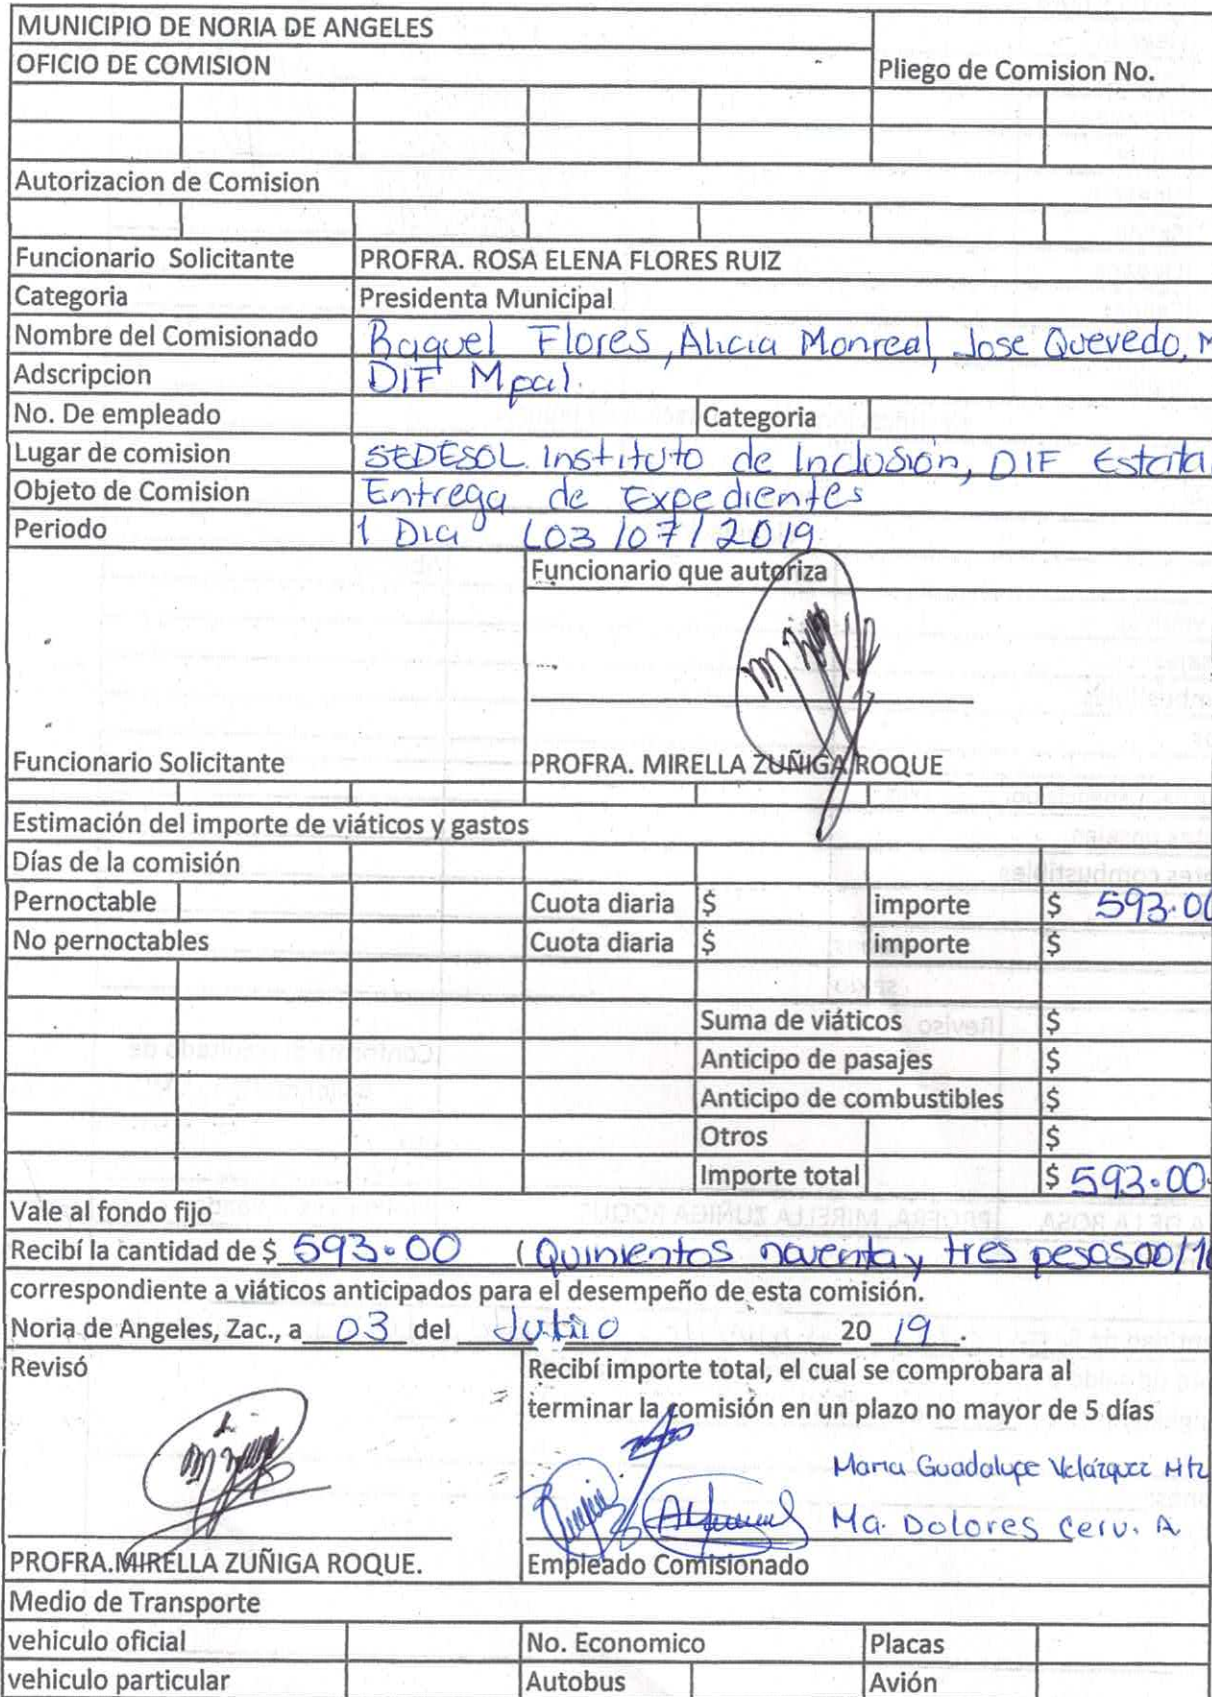 MUNICIPIO DE NORIA DE ANGELES
OFICIO DE COMISION
Pliego de Comision No.
Autorizacion de Comision
Funcionario Solicitante PROFRA. ROSA ELENA FLORES RUIZ
Categoria Presidenta Municipal
Nombre del Comisionado Raquel Flores, Alicia Monreal, Jose Quevedo, M
Adscripcion DIF Mpal.
No. De empleado Categoria
Lugar de comision SEDESOL. Instituto de Inclusión, DIF Estata
Objeto de Comision Entrega de Expedientes
Periodo 1 Dia (03/07/2019
Funcionario que autoriza
Funcionario Solicitante PROFRA. MIRELLA ZUÑIGA ROQUE
Estimación del importe de viáticos y gastos
Días de la comisión
Pernoctable Cuota diaria $ importe $ 593.00
No pernoctables Cuota diaria $ importe $
Suma de viáticos $
Anticipo de pasajes $
Anticipo de combustibles $
Otros $
Importe total $ 593.00
Vale al fondo fijo
Recibí la cantidad de $ 593.00 (Quinientos noventa y tres pesos 00/10
correspondiente a viáticos anticipados para el desempeño de esta comisión.
Noria de Angeles, Zac., a 03 del Julio 20 19.
Revisó Recibí importe total, el cual se comprobara al
terminar la comisión en un plazo no mayor de 5 días
Maria Guadalupe Velázquez Mtz
Ma. Dolores Cerv. A
PROFRA.MIRELLA ZUÑIGA ROQUE. Empleado Comisionado
Medio de Transporte
vehiculo oficial No. Economico Placas
vehiculo particular Autobus Avión